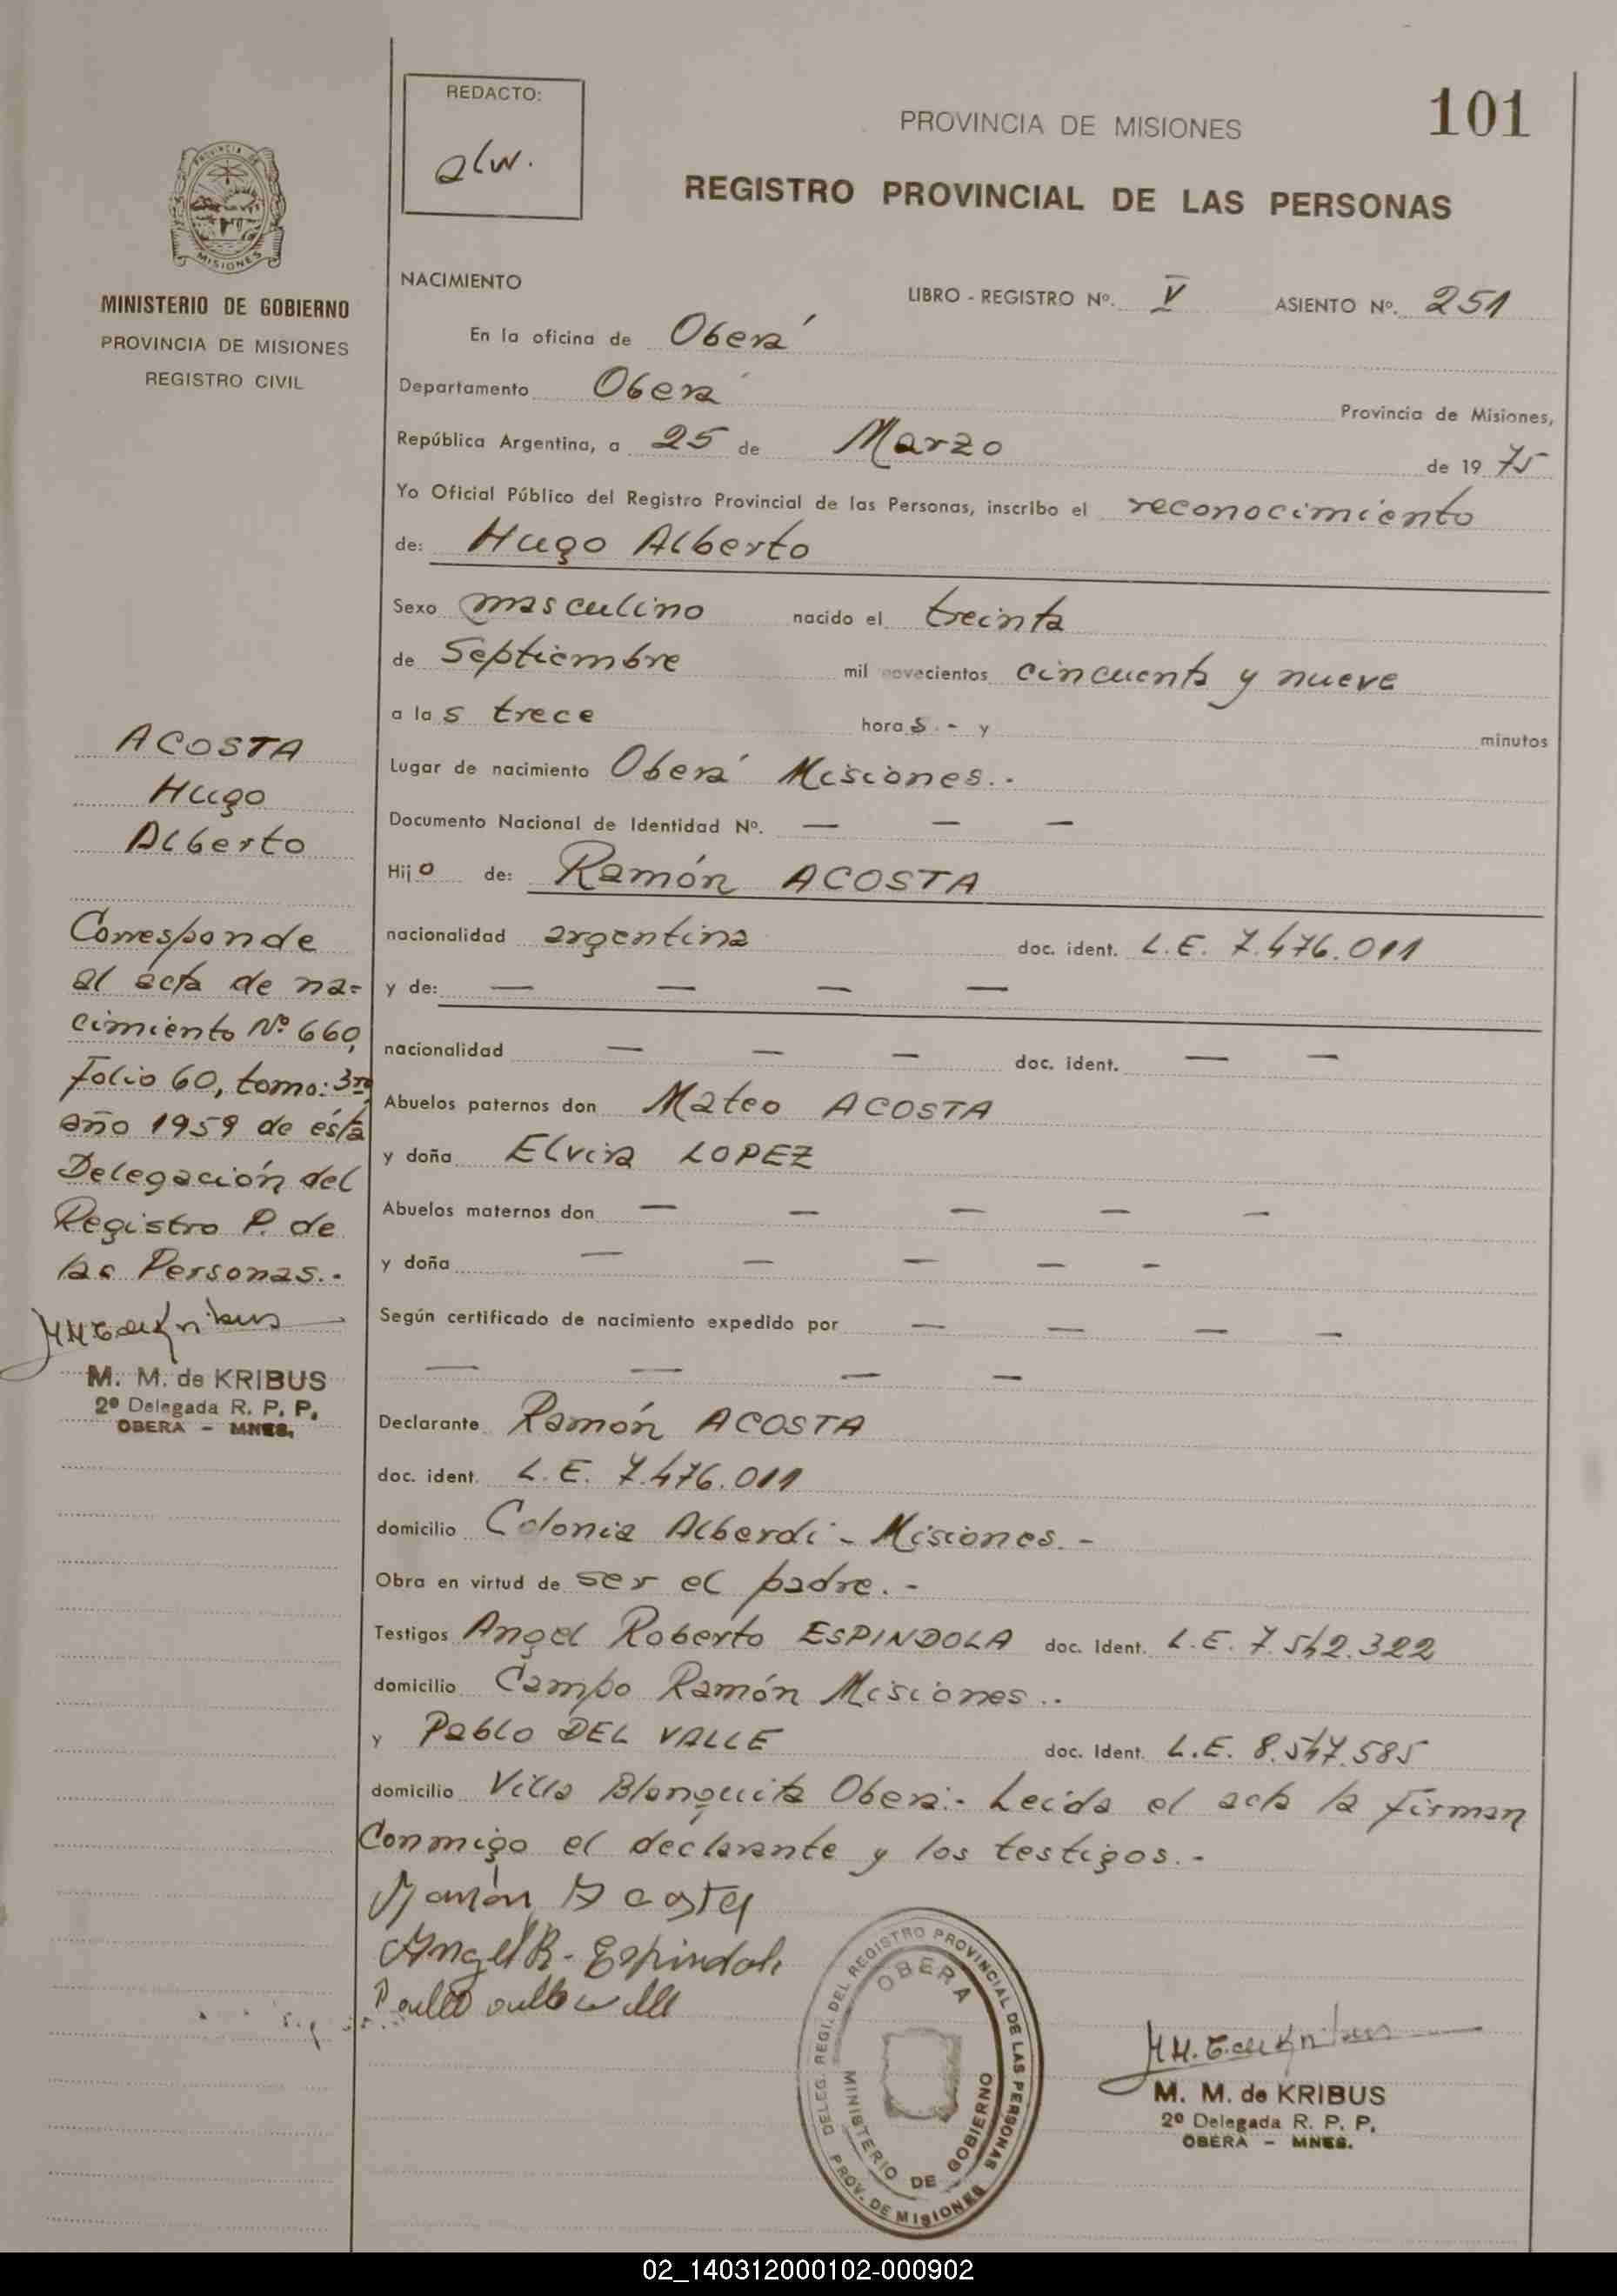 REDACTO:
alw.
PROVINCIA DE MISIONES
101
REGISTRO PROVINCIAL DE LAS PERSONAS
PROVINCIA DE
MISIONES
MINISTERIO DE GOBIERNO
PROVINCIA DE MISIONES
REGISTRO CIVIL
NACIMIENTO
LIBRO - REGISTRO Nº. V ASIENTO Nº. 251
En la oficina de Oberá
Departamento Oberá Provincia de Misiones,
República Argentina, a 25 de Marzo de 1975
Yo Oficial Público del Registro Provincial de las Personas, inscribo el reconocimiento
de: Hugo Alberto
Sexo masculino nacido el treinta
de Septiembre mil novecientos cincuenta y nueve
a las trece horas.- y minutos
Lugar de nacimiento Oberá Misiones.-
Documento Nacional de Identidad Nº. — — —
Hijo de: Ramón ACOSTA
nacionalidad argentina doc. ident. L.E. 7.476.011
y de: — — — —
nacionalidad — — — doc. ident. — —
Abuelos paternos don Mateo ACOSTA
y doña Elvira LOPEZ
Abuelos maternos don — — — — —
y doña — — — — —
Según certificado de nacimiento expedido por — — — —
— — — —
Declarante Ramón ACOSTA
doc. ident. L.E. 7.476.011
domicilio Colonia Alberdi - Misiones.-
Obra en virtud de ser el padre.-
Testigos Angel Roberto ESPINDOLA doc. Ident. L.E. 7.542.322
domicilio Campo Ramón Misiones..
y Pablo DEL VALLE doc. Ident. L.E. 8.547.585
domicilio Villa Blanquita Oberá.- Leída el acta la firman
Conmigo el declarante y los testigos.-
Ramón Acosta
Angel R. Espindola
ACOSTA
Hugo
Alberto
Corresponde
al acta de na-
cimiento Nº 660,
Folio 60, tomo: 3ro,
año 1959 de ésta
Delegación del
Registro P. de
las Personas.-
M. M. de KRIBUS
2º Delegada R. P. P.
OBERA - MNES.
DELEG. REGI. DEL REGISTRO PROVINCIAL DE LAS PERSONAS
OBERA
MINISTERIO DE GOBIERNO
PROV. DE MISIONES
M. M. de KRIBUS
2º Delegada R. P. P.
OBERA - MNES.
02_140312000102-000902